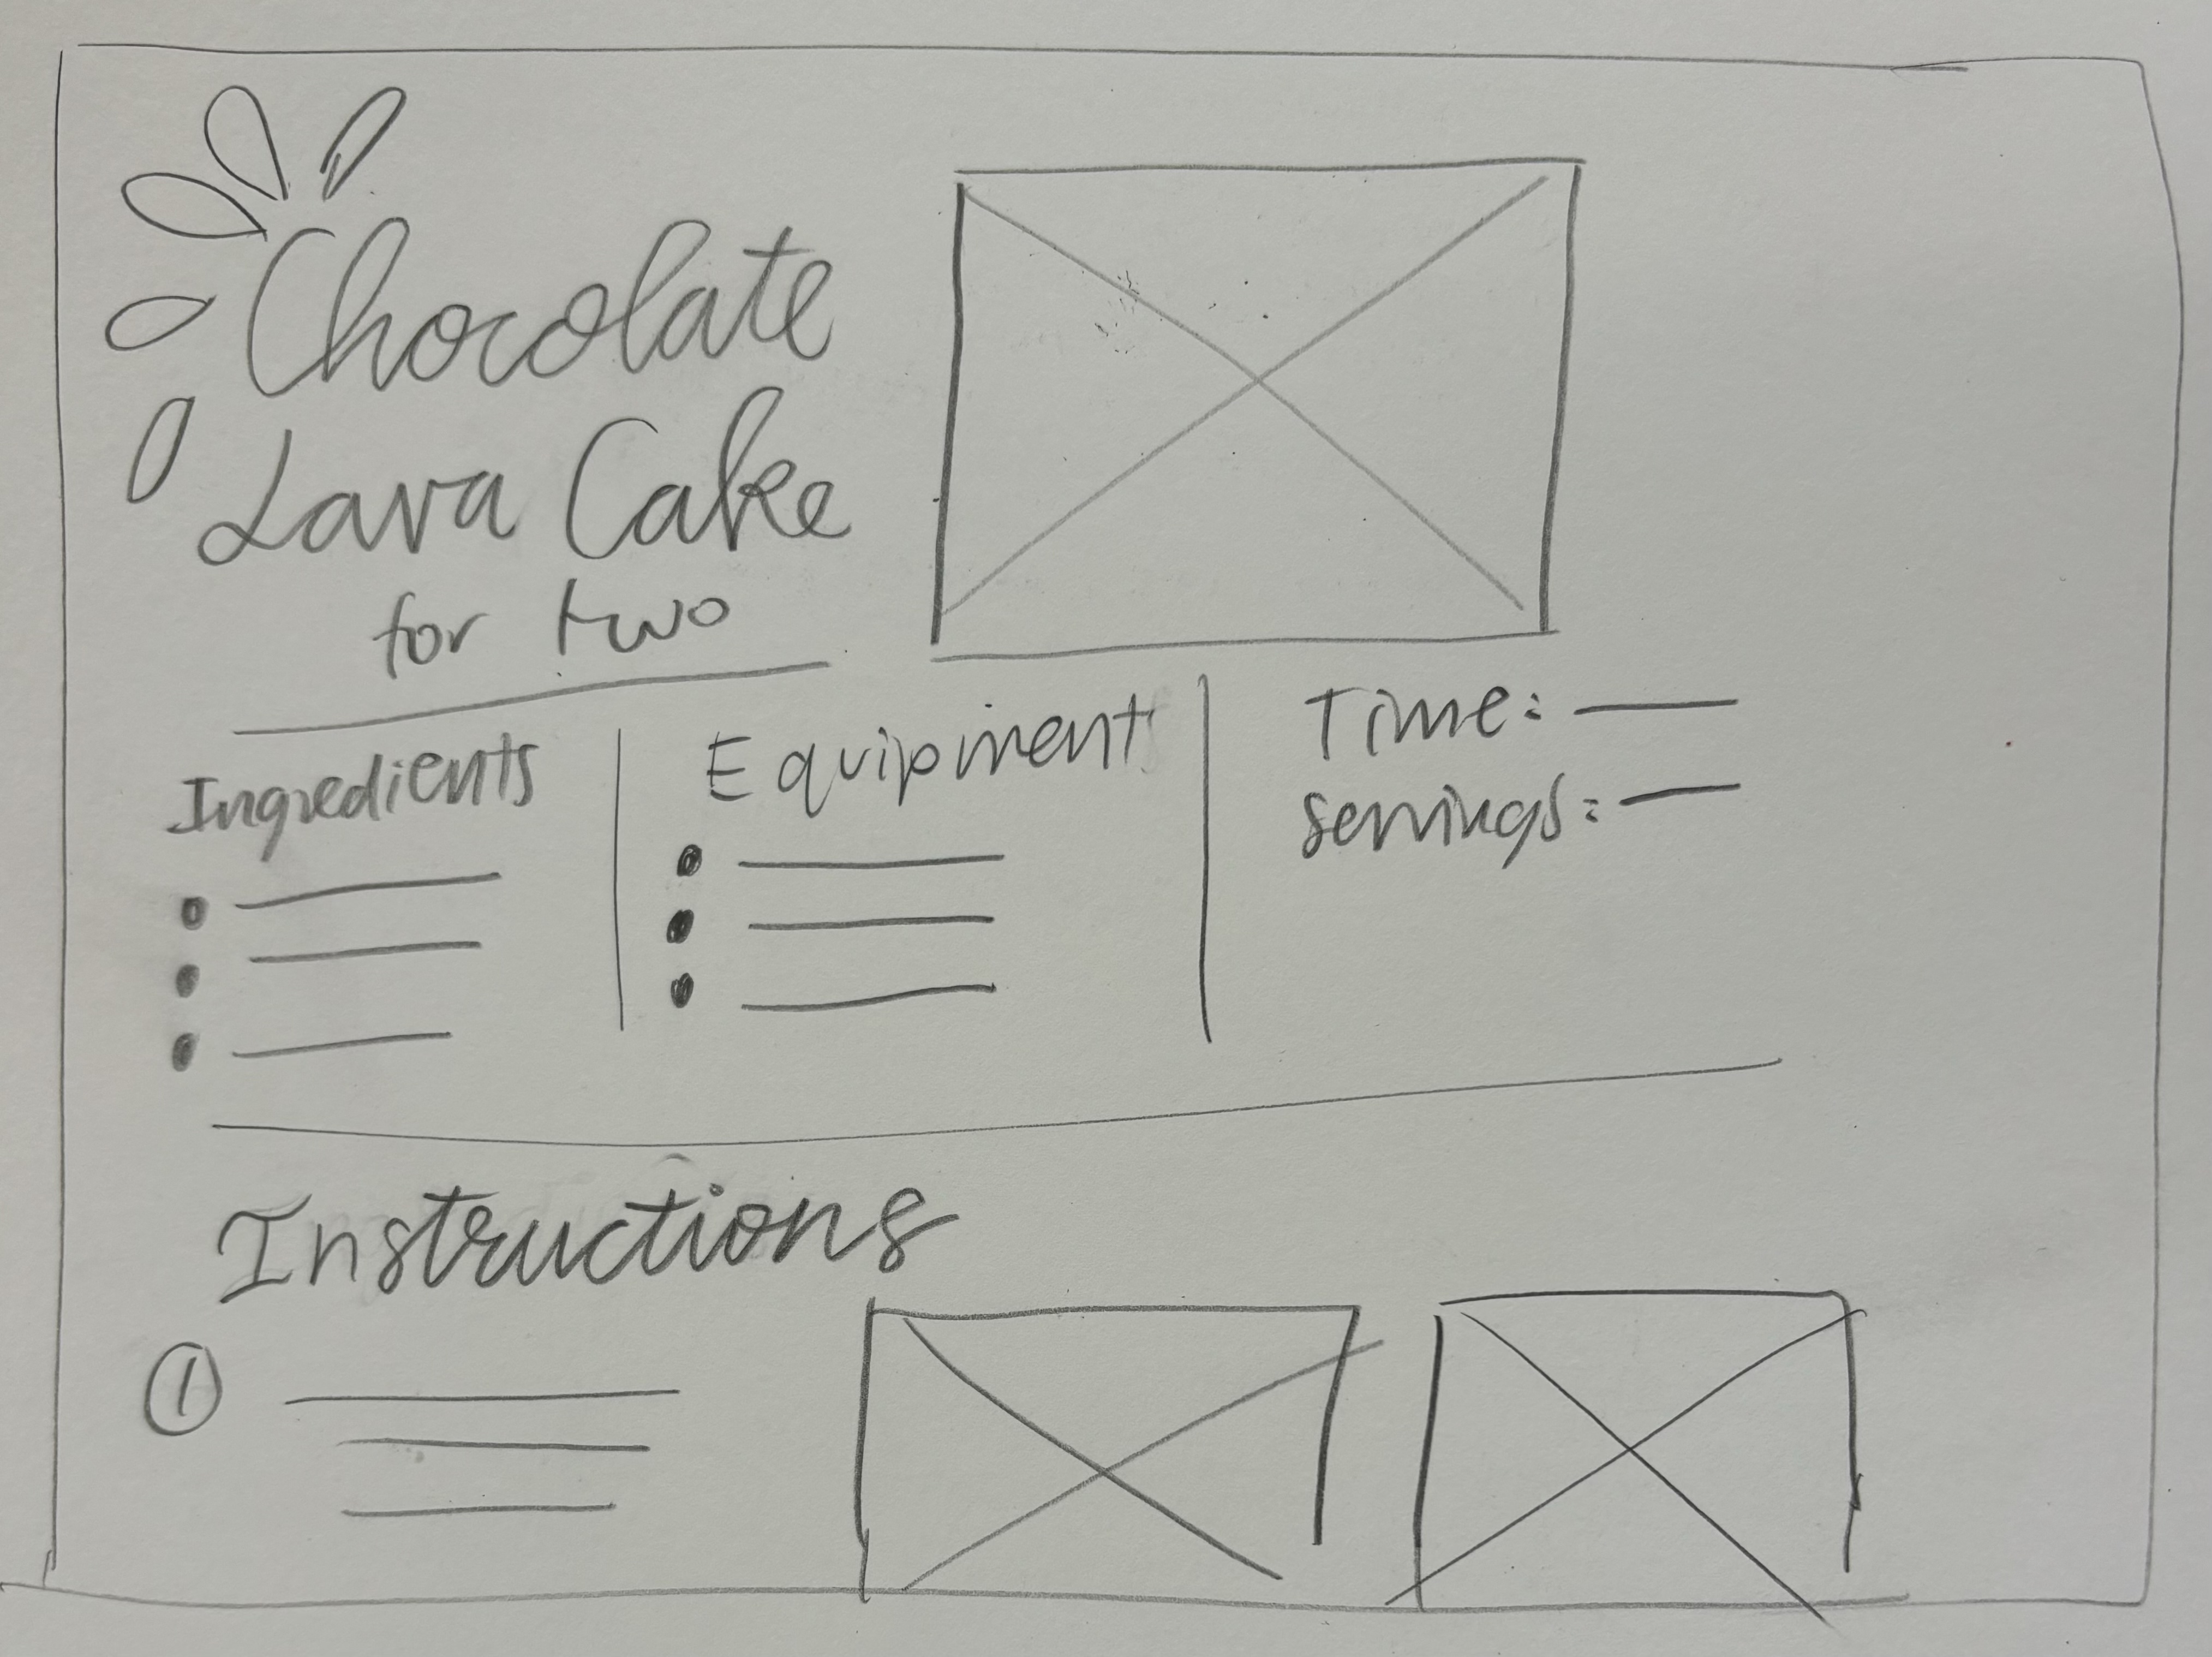 Chocolate
Lava Cake
for two
Ingredients
Equipment
Time:
Servings:
Instructions
1